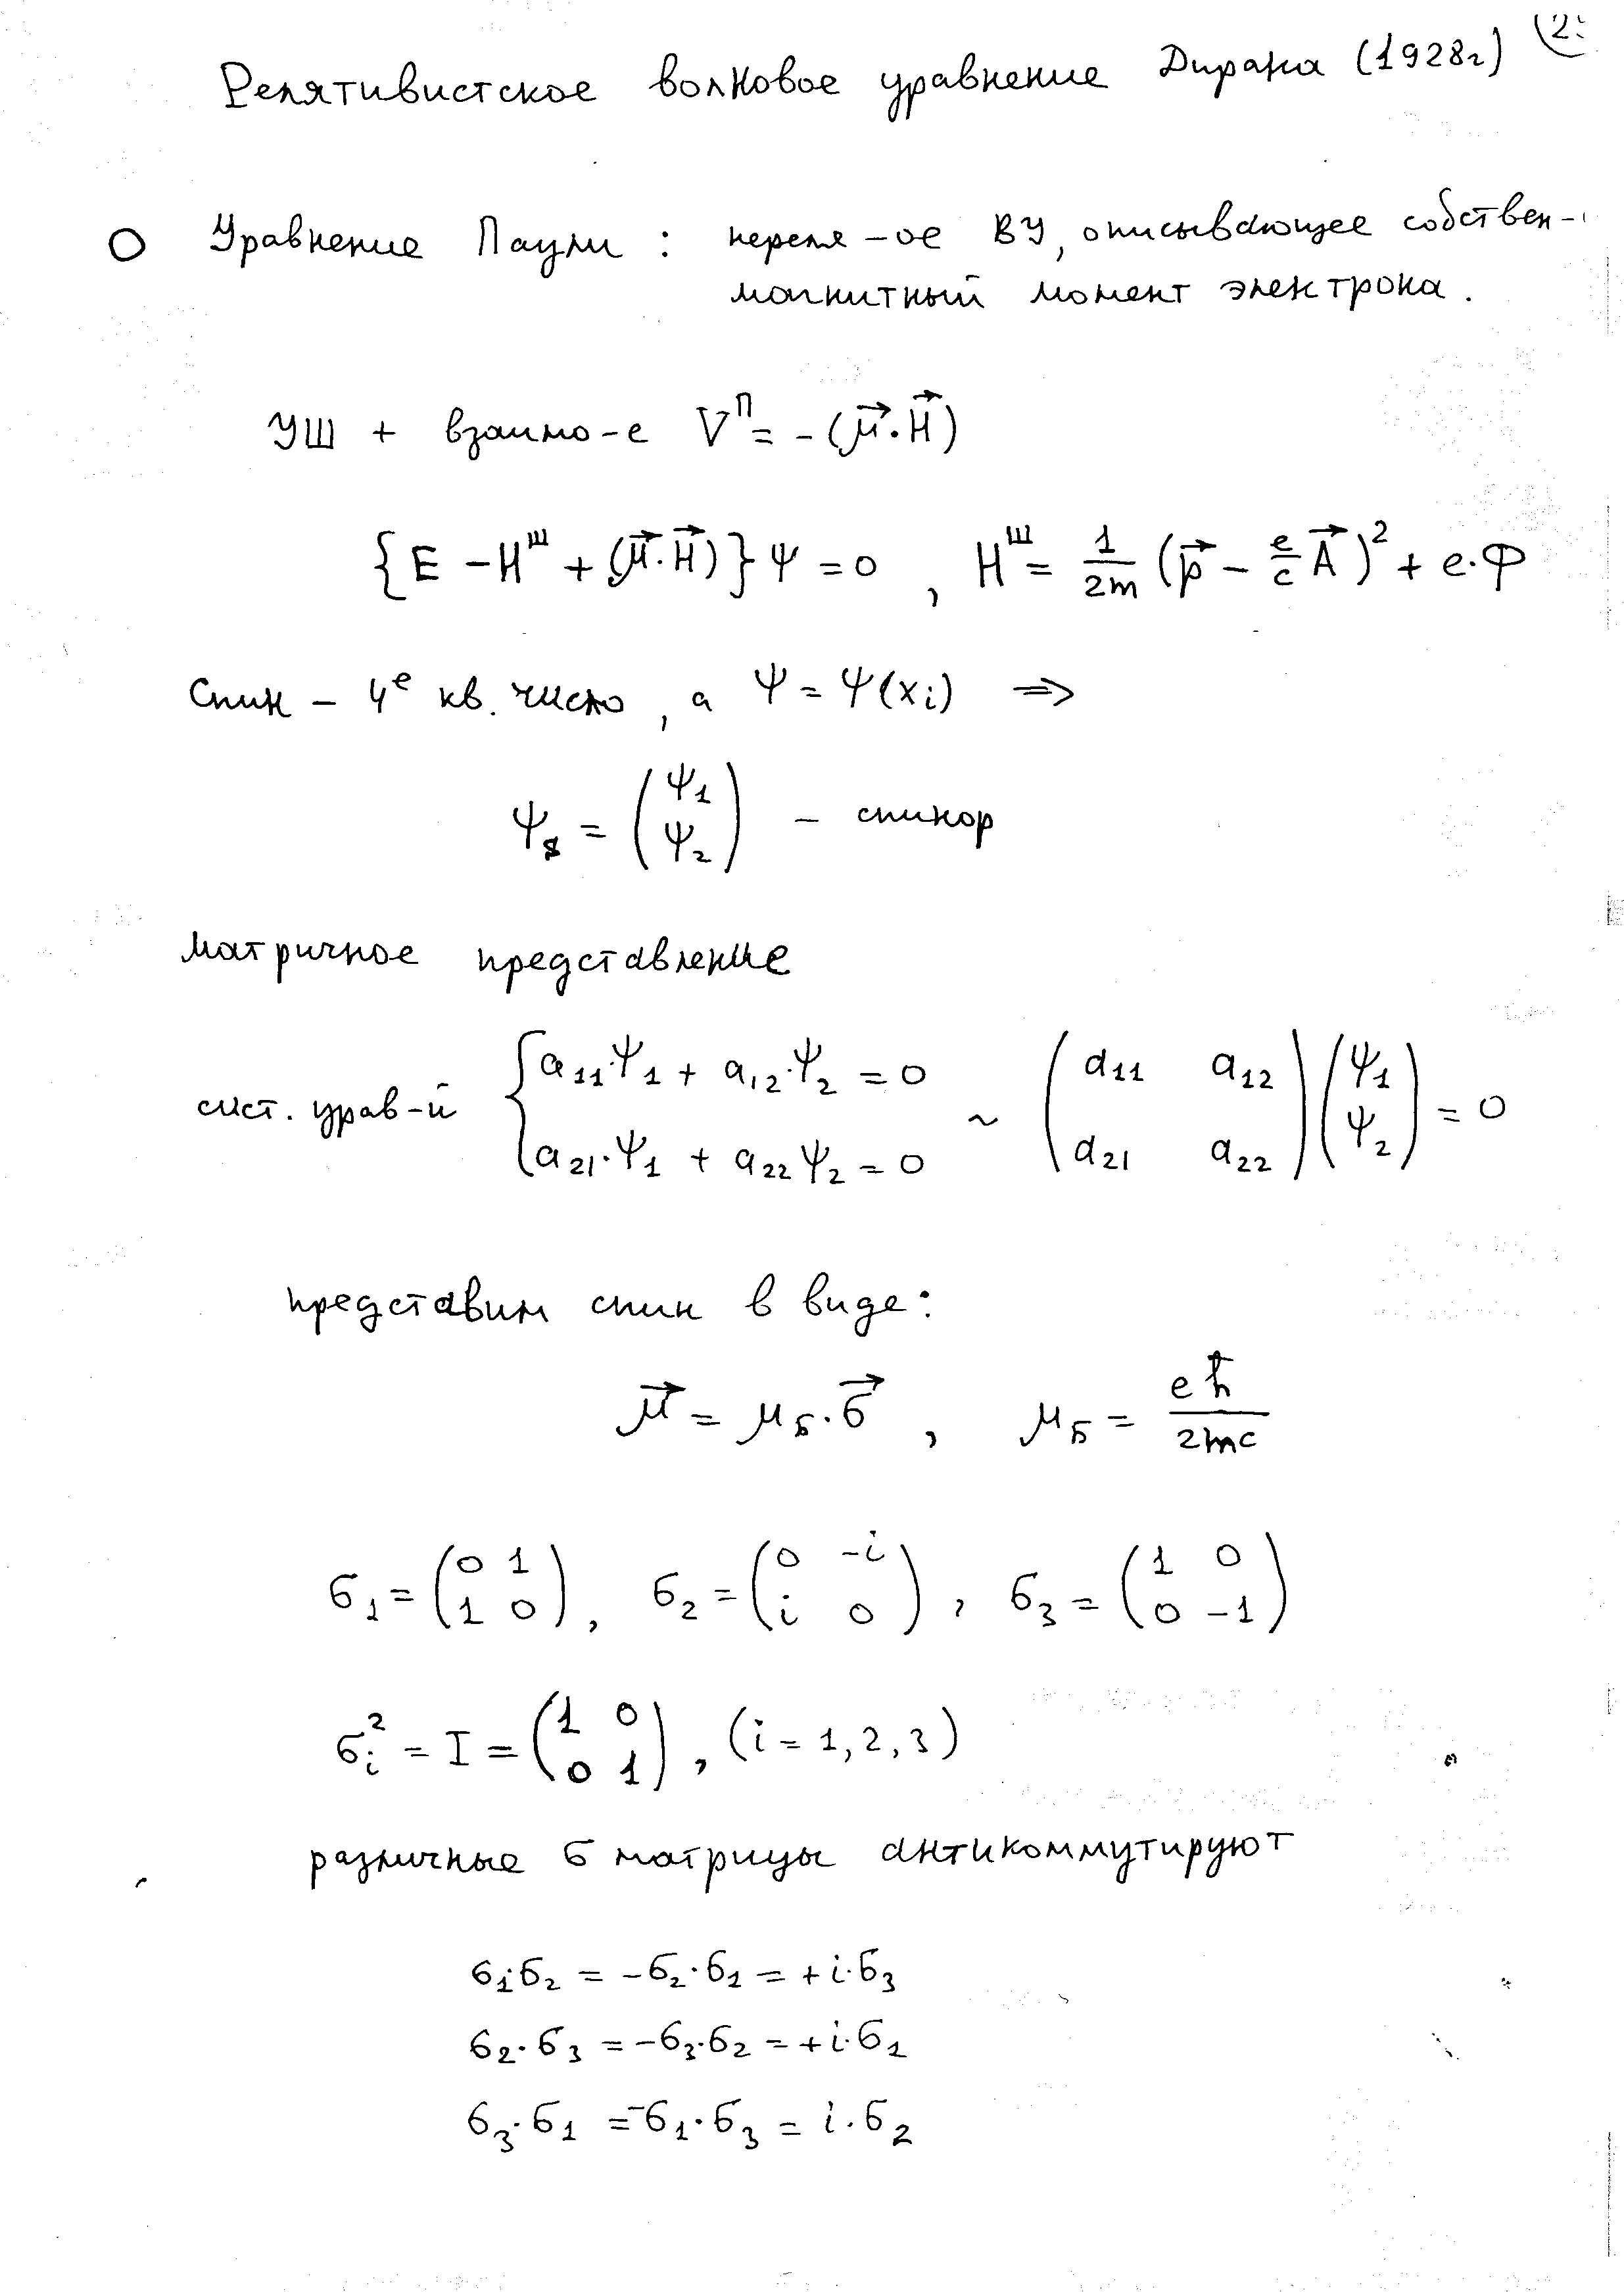 Релятивистское волновое уравнение Дирака (1928г)
О Уравнение Паули : нереля-ое ВУ, описывающее собствен-
магнитный момент электрона.
УШ + взаимо-е Vᴨ = -(μ⃗·H⃗)
{E - Hᵚ + (μ⃗·H⃗)}ψ = 0 , Hᵚ = 1/2m (p⃗ - e/c A⃗)² + e·Φ
Спин - 4ᵉ кв. число, а Ψ = Ψ(xᵢ) ⇒
Ψₛ = (Ψ₁ Ψ₂) - спинор
матричное представление
сист. урав-й {a₁₁·Ψ₁ + a₁₂·Ψ₂ = 0 a₂₁·Ψ₁ + a₂₂Ψ₂ = 0 ~ (a₁₁ a₁₂ a₂₁ a₂₂)(Ψ₁ Ψ₂) = 0
представим спин в виде:
μ⃗ = μ_Б·σ⃗ , μ_Б = eħ/2mc
σ₁ = (0 1 1 0), σ₂ = (0 -i i 0), σ₃ = (1 0 0 -1)
σᵢ² = I = (1 0 0 1), (i = 1,2,3)
различные σ матрицы антикоммутируют
σ₁·σ₂ = -σ₂·σ₁ = +i·σ₃
σ₂·σ₃ = -σ₃·σ₂ = +i·σ₁
σ₃·σ₁ = -σ₁·σ₃ = i·σ₂